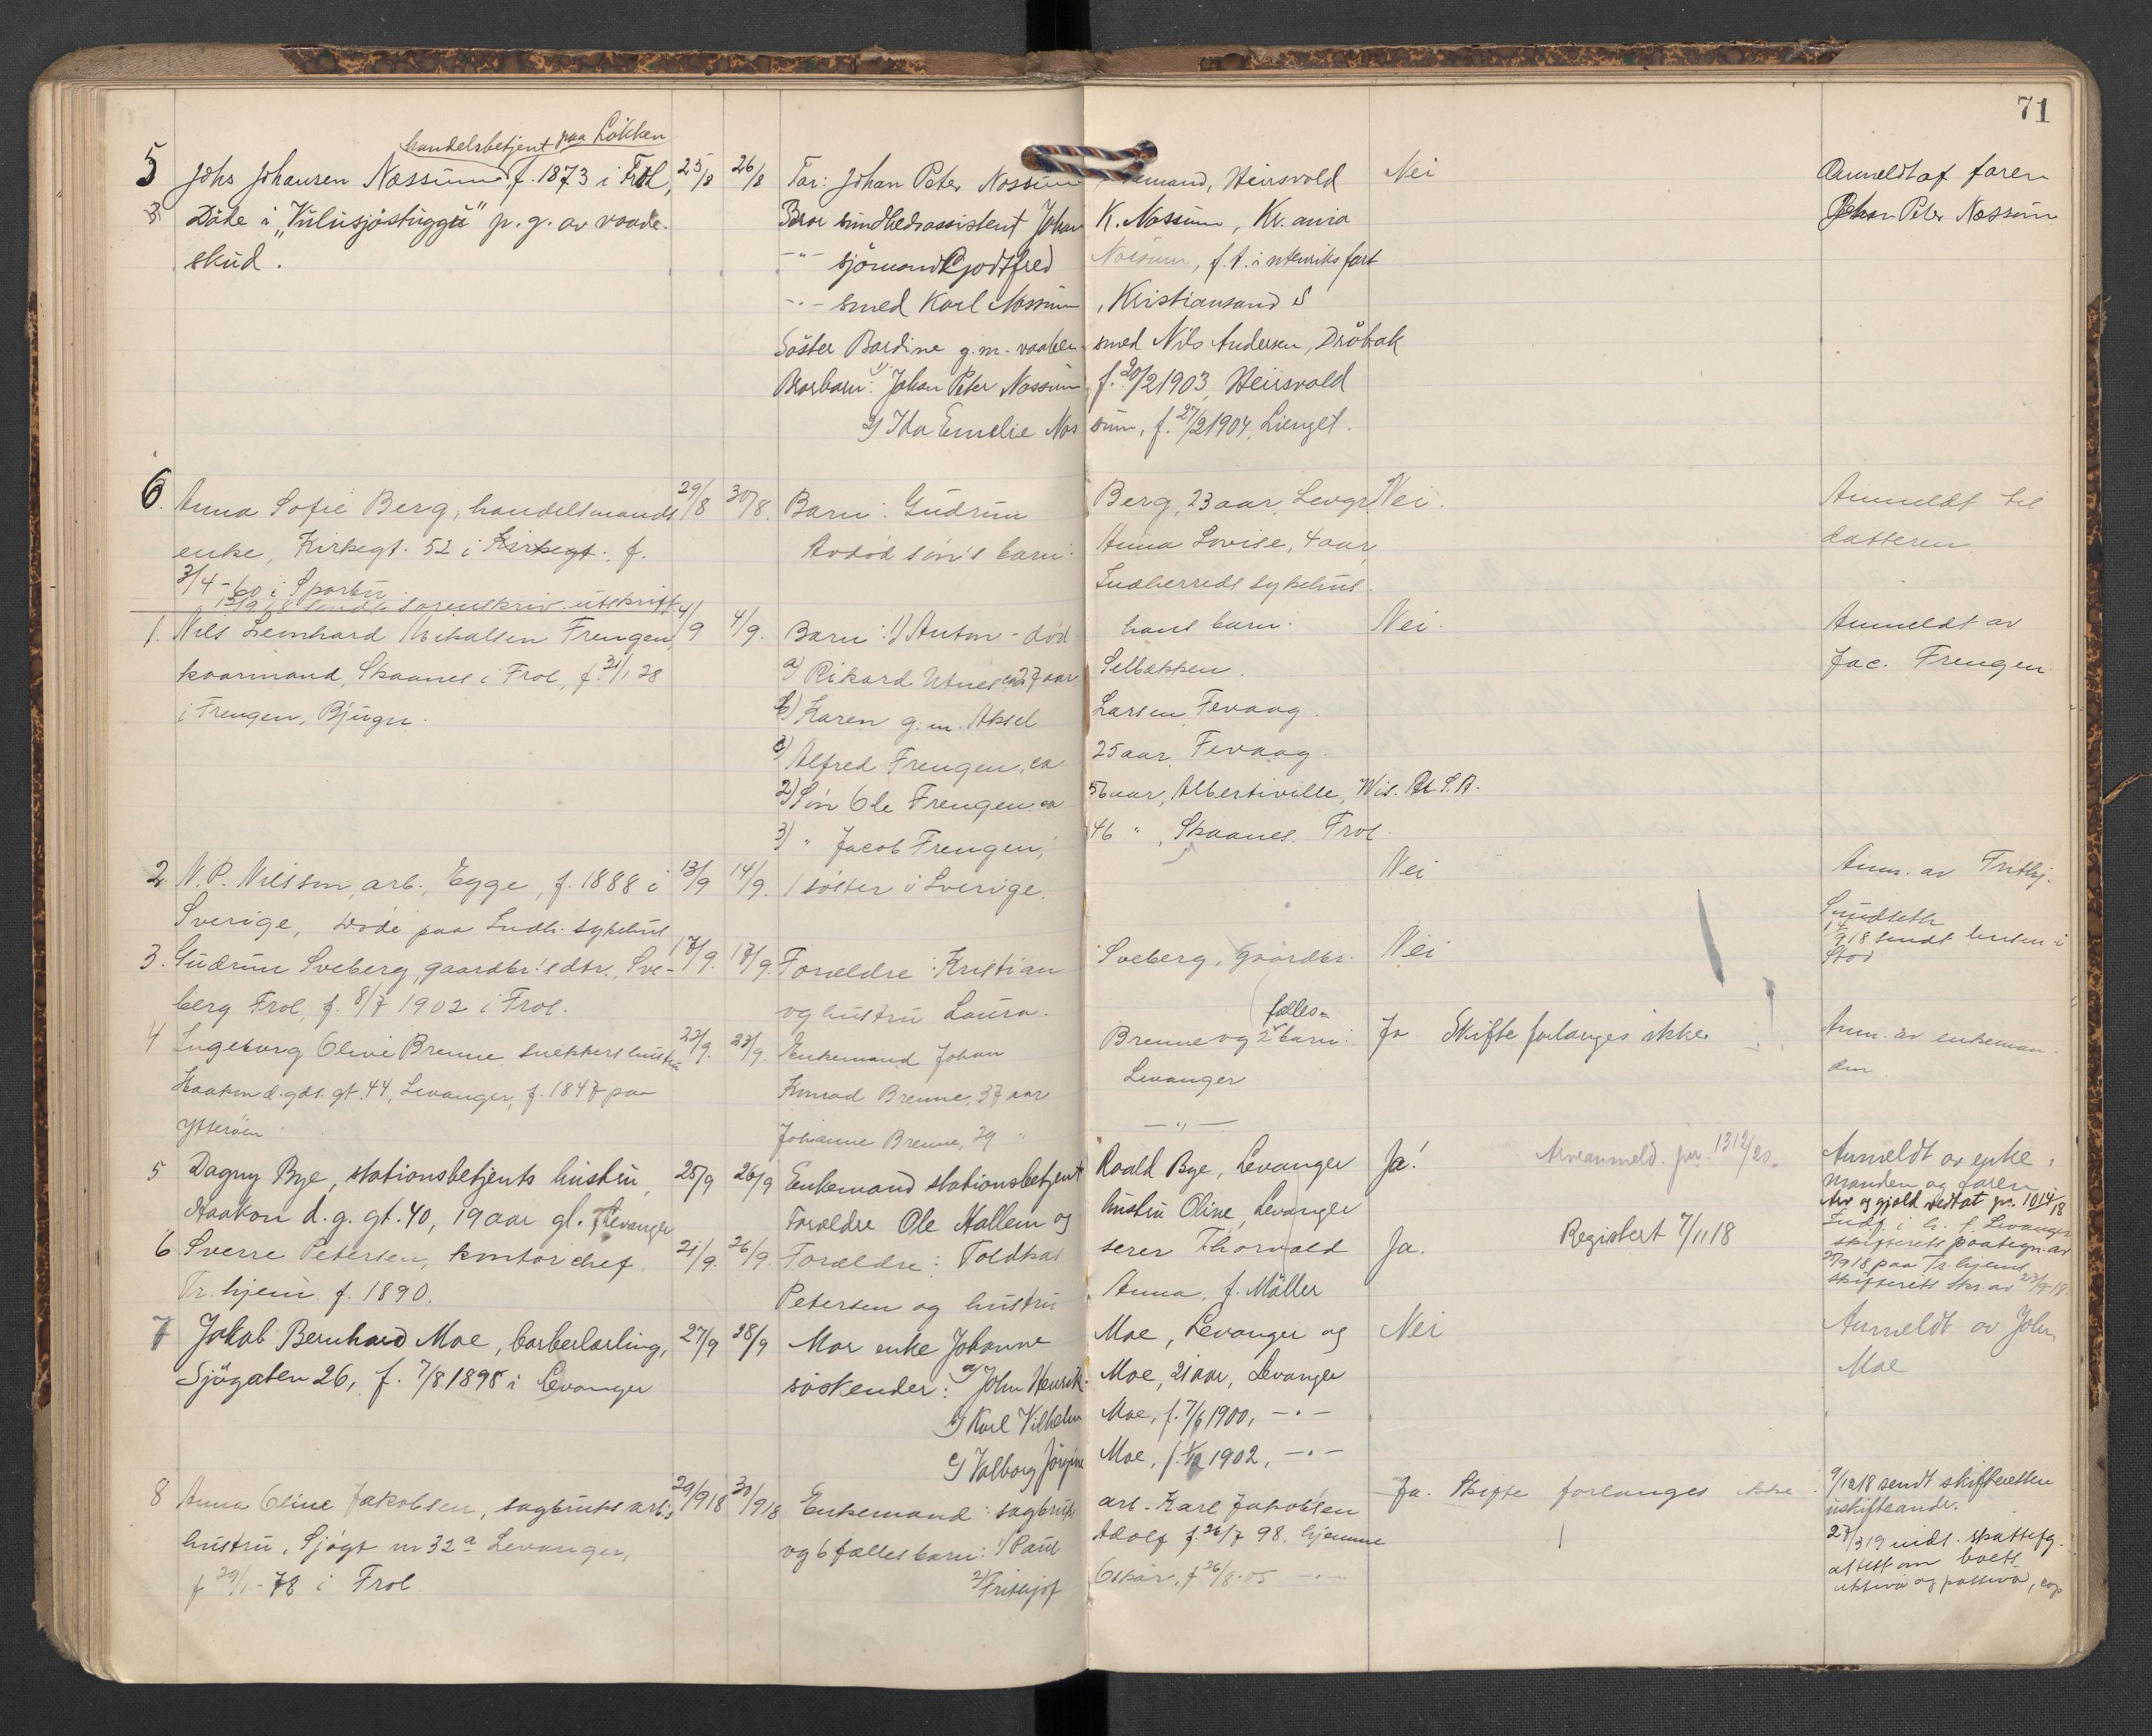 71
handelsbetjent paa Lökken
5 Johs Johansen Nossum, f. 1873 i Frol, 25/8 26/8 Far: Johan Peter Nossum Heirsvold Nei Anmeldt af faren
3 Döde i "Vulusjöstuggu" p. g. av vaade- Bror sundhedsassistent Johan K. Nossum, Kr.ania Johan Peter Nossum
skud. -"- sjömand Godtfred Nossum, f. t. i utenriks fart
-"- smed Karl Nossum, Kristiansand S
Söster Bardine g.m. vaaben smed Nils Andersen, Dröbak
Brorbarn: 1) Johan Peter Nossum f. 20/2 1903, Heirsvold
2) Ida Emelie Nossum, f. 27/2 1904, Lienget.
6. Anna Sofie Berg, handelsmands 29/8 30/8. Barn: Gudrun Berg, 23 aar, Levgr Nei. Anmeldt til
enke, Kirkegt. 52 i Kirkegt. f. Avdöd söns barn: Anna Lovise, 4 aar, datteren
3/4-60 i Sparbu Indherreds sykehus.
13/9 18 sendt sorenskriv. utskrift
1. Nils Leonhard Mikalsen Frengen, 4/9 4/9. Barn: 1) Anton - död hans barn: Nei. Anmeldt av
kaarmand, Skaanes i Frol, f. 31/1 28 a) Rikard Utnes ca 27 aar Selbækken. Jac. Frengen.
i Frengen, Bjugn. b) Karen g. m. Aksel Larsen Fevaag.
c) Alfred Frengen, ca 25 aar, Fevaag.
2) Sön Ole Frengen ca 56 aar, Albertiville, Wis. U. S. A.
3) " Jacob Frengen, 46 ", Skaanes. Frol.
2. N. P. Nilsson, arb., Egge, f. 1888 i 13/9 14/9. 1 söster i Sverige. Nei Anm. av Frithj.
Sverige, Döde paa Indh. sykehus Sundseth
14/9 18 sendt lensm. i
Stod
3. Gudrun Sveberg, gaardbr.'s dtr., Sve- 17/9. 17/9. Forældre: Kristian Sveberg, Gaardbr. Nei
berg Frol, f. 8/7 1902 i Frol. og hustru Laura.
4 Ingeborg Olive Brenne snekkers hustru 23/9. 23/9. Enkemand Johan Brenne og 2 fælles- barn: Ja Skifte forlanges ikke Anm. av enkeman-
Haakon d. gds. gt. 44, Levanger, f. 1847 paa Konrad Brenne, 37 aar Levanger den.
Ytteröen Johanne Brenne, 29 " —"—
5 Dagny Bye, stationsbetjents hustru, 25/9 26/9 Enkemand stationsbetjent Roald Bye, Levanger Ja! Arveanmeld. jnr. 1312/20. Anmeldt av enke-
Haakon d. g. gt. 40, 19 aar gl. f. Levanger Forældre Ole Hallem og hustru Oline, Levanger manden og faren
Arv og gjeld vedtat jnr. 1014/18
6 Sverre Petersen, kontorchef, 21/9. 26/9. Forældre: Toldkas serer Thorvald Ja. Registert 7/11 18 Indf. i h. f. Levanger
Tr.hjem f. 1890. Petersen og hustru Anna, f. Möller skifterets paategn. av
25/9 18 paa Tr.hjems
skifterets skr. av 23/9-18.
7 Jakob Bernhard Moe, barberlærling, 27/9 28/9 Mor enke Johanne Moe, Levanger og Nei Anmeldt av John
Sjögaten 26, f. 7/8 1898 i Levanger söskender: a) John Henrik Moe, 21 aar, Levanger Moe
b) Karl Vilhelm Moe, f. 7/6 1900, -"-
c) Valborg Jörgine Moe, f. 1/12 1902, -"-
8 Anna Oline Jakobsen, sagbruks arb.s 29/9 18 30/9 18 Enkemand: sagbruks arb. Karl Jakobsen Ja. Skifte forlanges ikke. 9/12 18 sendt skifteretten
hustru, Sjögt nr 32a Levanger, og 6 fælles barn: 1) Paul Adolf f. 26/7 98. hjemme uskifteandr.
f 29/1-78 i Frol. 2) Frithjof Oskar, f 26/8-05 -"- 27/3 19 indt. skattefg.
attest om boets
aktiva og passiva,